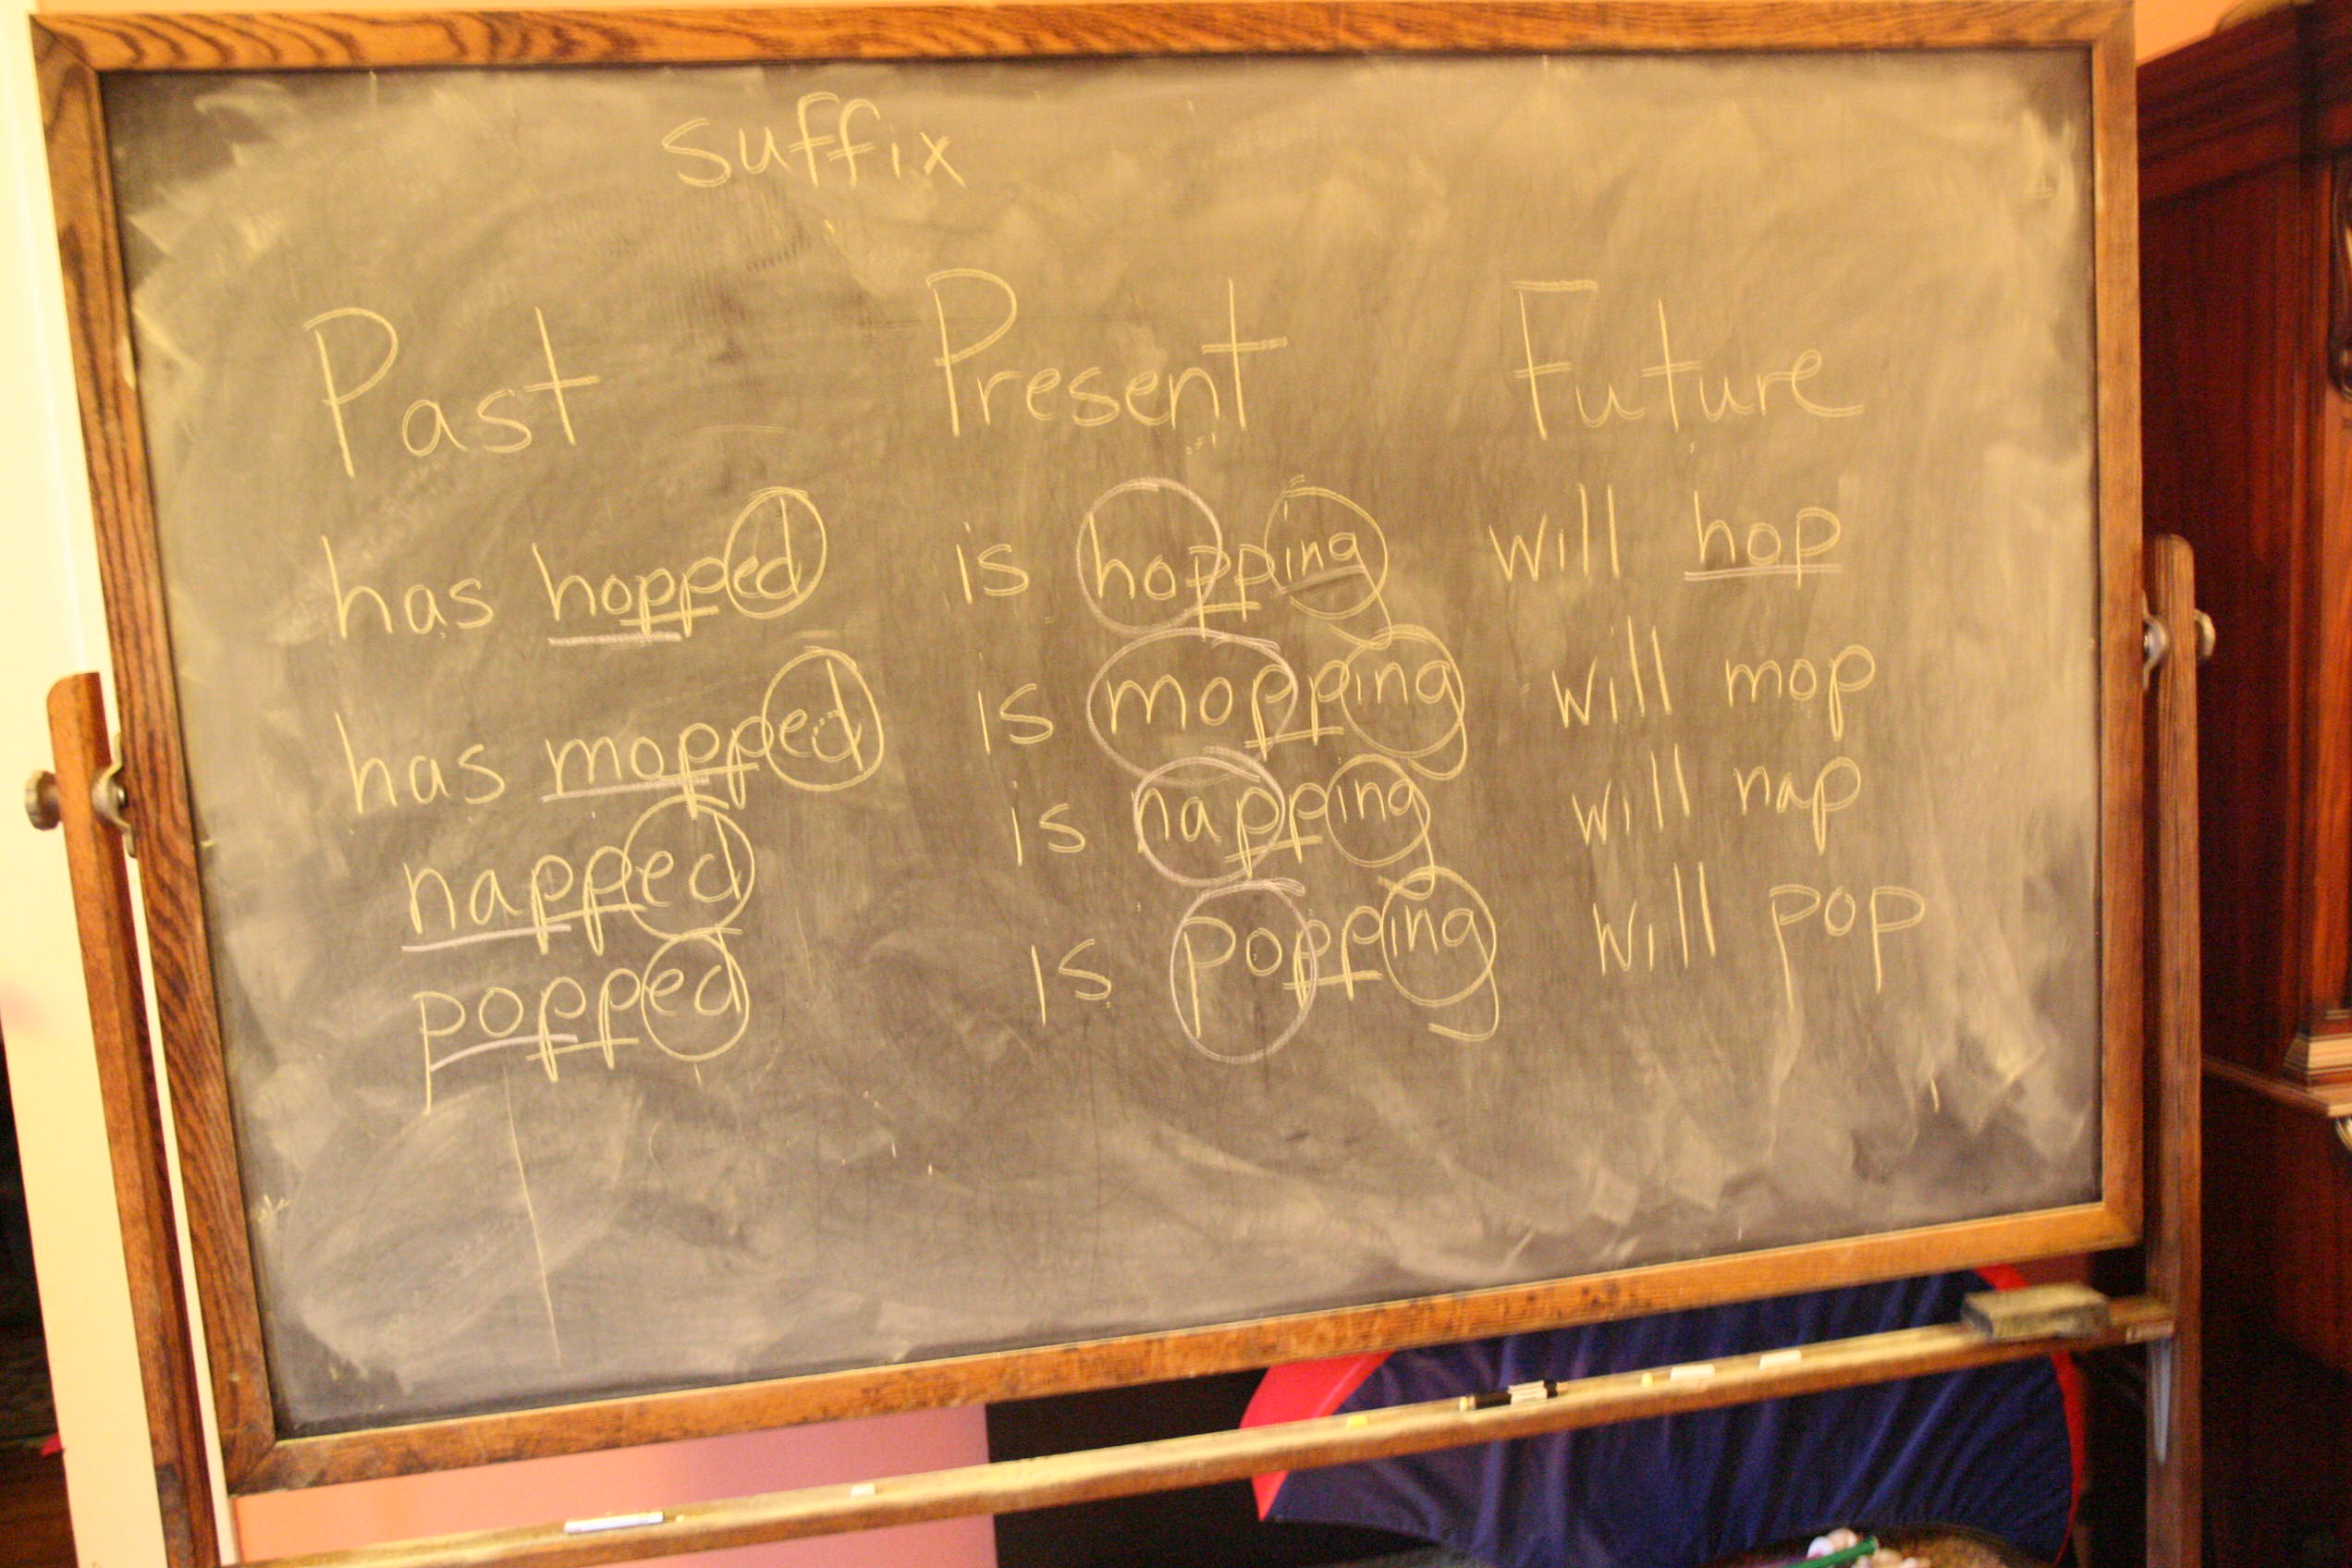 suffix
Past Present Future
has hopped is hopping will hop
has mopped is mopping will mop
napped is napping will nap
popped is popping will pop